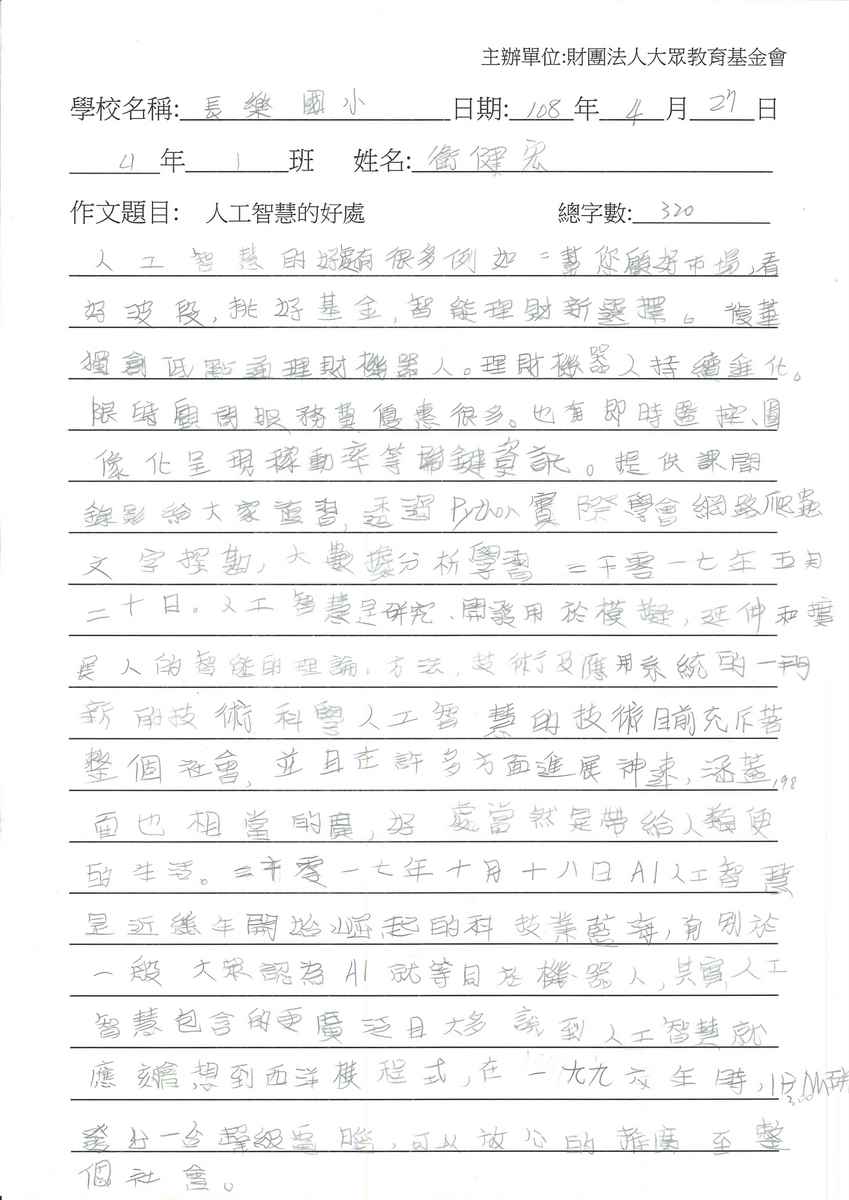 主辦單位:財團法人大眾教育基金會
學校名稱: 長樂國小 日期: 108 年 4 月 27 日
4 年 1 班 姓名: 衛健宏
作文題目: 人工智慧的好處 總字數: 320
人工智慧的好處有很多例如:幫您顧好市場,看
好波段,挑好基金,智能理財新選擇。復華
獨創低點通理財機器人。理財機器人持續進化。
限時顧問服務費優惠很多。也有即時監控、圖
像化呈現稼動率等關鍵資訊。提供課間
錄影給大家復習,透過Python實際學會網路爬蟲
文字探勘,大數據分析學習 二千零一七年五月
二十日。人工智慧是研究、開發用於模擬,延伸和擴
展人的智能的理論、方法、技術及應用系統的一門
新的技術科學人工智慧的技術目前充斥著
整個社會,並且在許多方面進展神速,涵蓋,198
面也相當的廣,好處當然是帶給人類便
的生活。二千零一七年十月十八日AI人工智慧
是近幾年開始崛起的科技業藍海,有別於
一般大眾認為AI就等目於機器人,其實人工
智慧包含的更廣泛且大多說到人工智慧就
應該會想到西洋棋程式,在一九九六年時,IBM
發出一台超級電腦,可以放心的推廣至整
個社會。